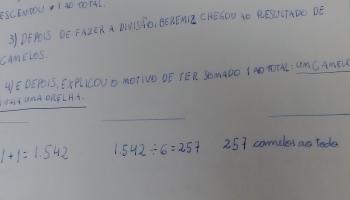 ESCENTOU + 1 AO TOTAL.
3) DEPOIS DE FAZER A DIVISÃO, BEREMIZ CHEGOU AO RESULTADO DE
CAMELOS.
4) E DEPOIS, EXPLICOU O MOTIVO DE TER SOMADO 1 AO TOTAL: UM CAMELO
UMA ORELHA.
1+1=1.542 1.542÷6=257 257 camelos ao todo